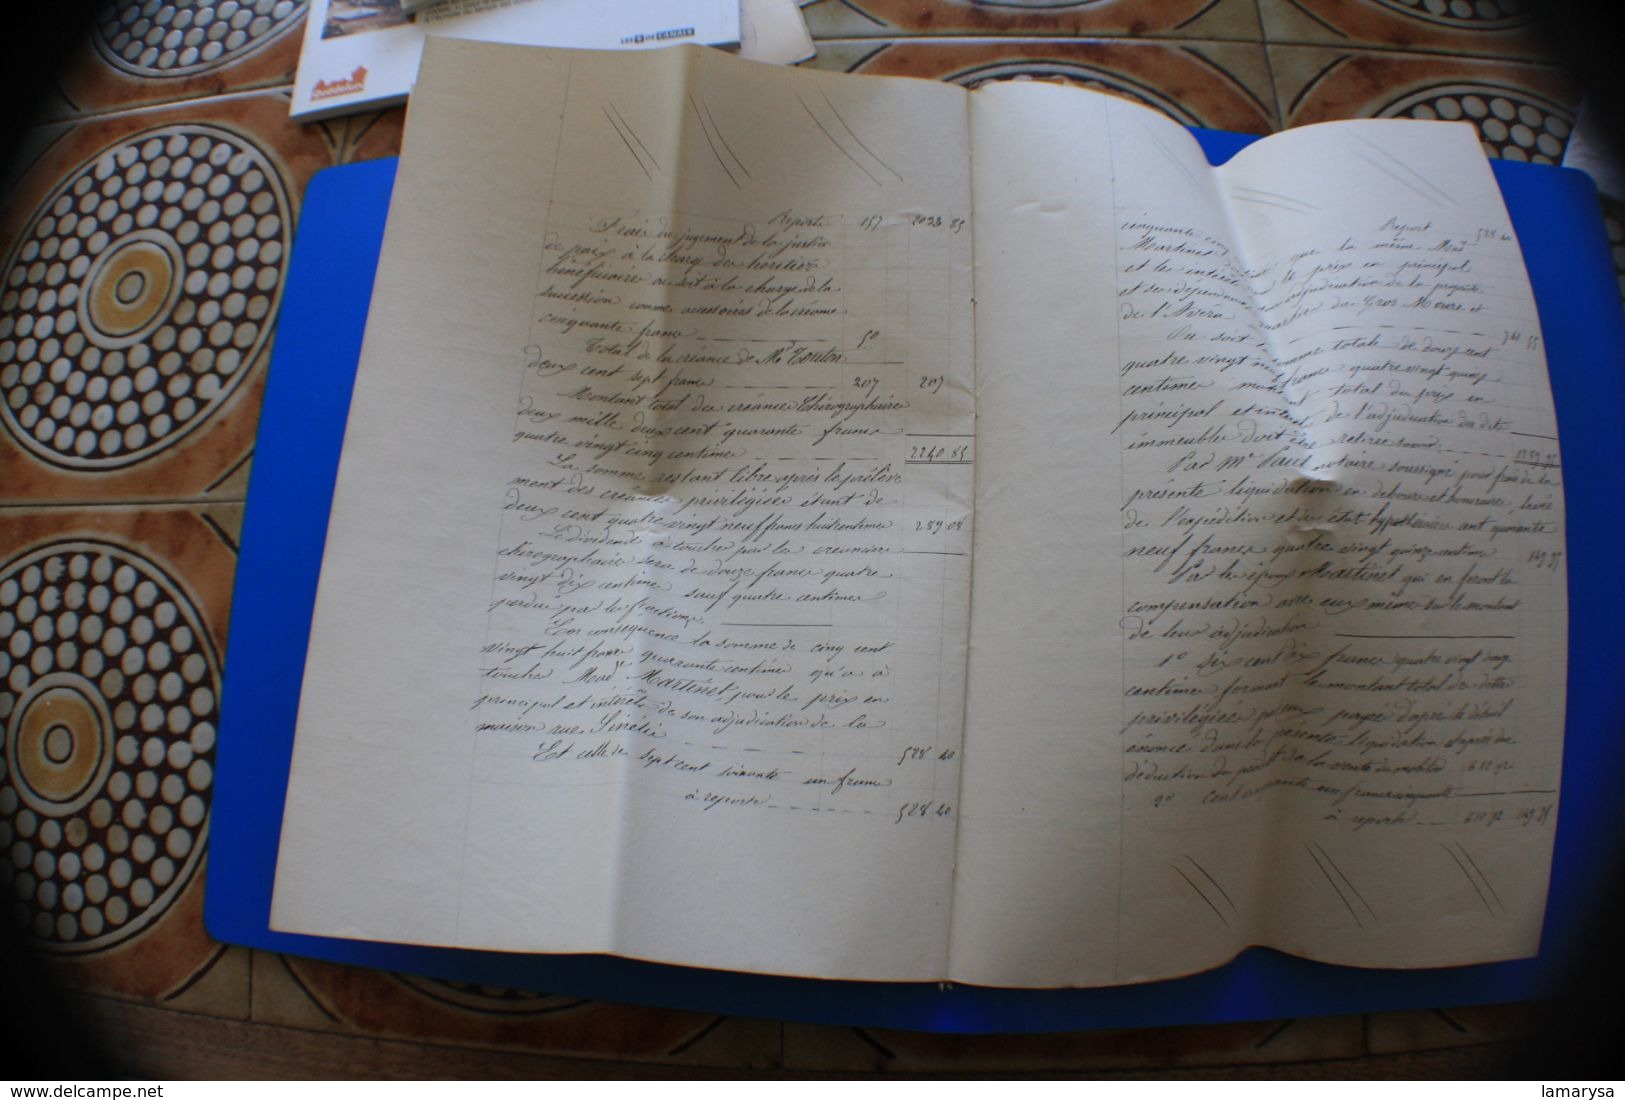 LES + DE CANAL+
Reporte 157 2023 85
Frais du jugement de la justice
de paix à la charge des heritiers
bénéficiaires ou soit à la charge de la
succession comme accessoires de la créance
cinquante francs 50
Total de la créance de Mr Toulon
deux cent sept francs 207 207
Montant total des créances Chirographaires
deux mille deux cent quarante francs
quatre vingt cinq centimes 2240 85
La somme restant libre après le prélève
ment des créances privilégiées étant de
deux cent quatre vingt neuf francs huit centimes 289 08
Le dividende à toucher par les creanciers
chirographaires sera de douze francs quatre
vingt dix centimes sauf quatre centimes
perdus par les fractions
En conséquence la somme de cinq cent
vingt huit francs quarante centimes qu'a à
toucher Mad Martinet, pour le prix en
principal et intérêts de son adjudication de la
maison rue
Et celle de sept cent soixante un francs 528 40
à reporter 528 40
Report 528 40
cinquante cinq centimes que la même Mad
Martinet doit le prix en principal
et les intérêts adjudication de la propriété
et ses dépendances quartier du Gros Moure et
de l'Avera 761 55
Ou soit somme totale de douze cent
quatre vingt neuf francs quatre vingt quinze
centimes montant total du prix en
principal et intérêts de l'adjudication des dits
immeubles doit être retirée savoir 1289 95
Par Me Paul notaire soussigné pour frais de la
présente liquidation en debours et honoraires, levée
de l'expédition et d'un état hypothécaire cent quarante
neuf francs quatre vingt quinze centimes 149 95
Par les époux Martinet qui en feront la
compensation avec eux même sur le montant
de leur adjudication
1° Six cent dix francs quatre vingt douze
centimes formant le montant total des dettes
privilégiées par eux payées d'après le détail
énoncé dans la présente liquidation d'après
déduction du produit de la vente du mobilier 610 92
2° cent cinquante un francs cinquante
à reporter 610 92 149 95
delcampe.net
lamarysa